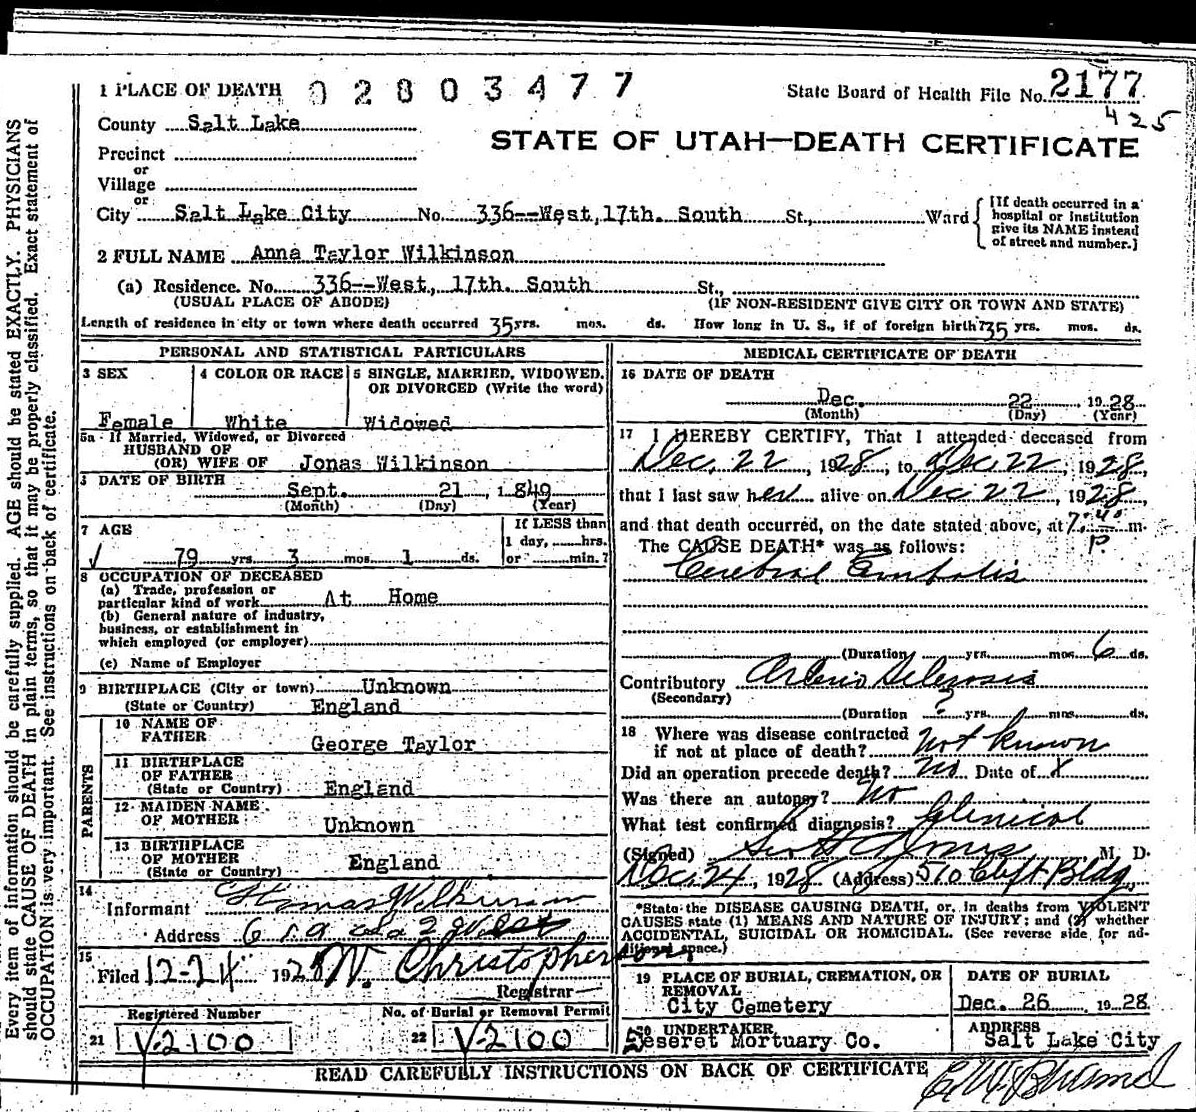 1 PLACE OF DEATH 02803477
State Board of Health File No. 2177
425
County Salt Lake
STATE OF UTAH—DEATH CERTIFICATE
Precinct
or
Village
or
City Salt Lake City No. 336--West, 17th. South St., Ward
[If death occurred in a hospital or institution give its NAME instead of street and number.]
2 FULL NAME Anna Taylor Wilkinson
(a) Residence. No. 336--West, 17th. South St.,
(USUAL PLACE OF ABODE) (IF NON-RESIDENT GIVE CITY OR TOWN AND STATE)
Length of residence in city or town where death occurred 35 yrs. mos. ds. How long in U. S., if of foreign birth? 35 yrs. mos. ds.
PERSONAL AND STATISTICAL PARTICULARS
3 SEX
Female
4 COLOR OR RACE
White
5 SINGLE, MARRIED, WIDOWED, OR DIVORCED (Write the word)
Widowed
5a If Married, Widowed, or Divorced
HUSBAND OF
(OR) WIFE OF Jonas Wilkinson
DATE OF BIRTH
Sept. 21, 1849
(Month) (Day) (Year)
7 AGE
79 yrs. 3 mos. 1 ds.
If LESS than
1 day, hrs.
or min.?
8 OCCUPATION OF DECEASED
(a) Trade, profession or
particular kind of work At Home
(b) General nature of industry,
business, or establishment in
which employed (or employer)
(c) Name of Employer
9 BIRTHPLACE (City or town) Unknown
(State or Country) England
PARENTS
10 NAME OF
FATHER George Taylor
11 BIRTHPLACE
OF FATHER
(State or Country) England
12 MAIDEN NAME
OF MOTHER Unknown
13 BIRTHPLACE
OF MOTHER
(State or Country) England
14
Informant Thomas Wilkinson
Address
15
Filed 12-24 1928 W. Christopherson,
Registrar
Registered Number
21 V-2100
No. of Burial or Removal Permit
22 V-2100
MEDICAL CERTIFICATE OF DEATH
16 DATE OF DEATH
Dec. 22, 1928
(Month) (Day) (Year)
17 I HEREBY CERTIFY, That I attended deceased from
Dec. 22, 1928, to Dec 22, 1928
that I last saw her alive on Dec 22, 1928,
and that death occurred, on the date stated above, at 7:40 m.
P.
The CAUSE DEATH* was as follows:
Cerebral Embolis
(Duration yrs. mos. 6 ds.
Contributory Arterio Sclerosis
(Secondary)
(Duration ? yrs. mos. ds.
18 Where was disease contracted
if not at place of death? Not known
Did an operation precede death? No Date of X
Was there an autopsy? No
What test confirmed diagnosis? Clinical
(Signed) M. D.
Dec. 24, 1928 (Address) 510 Clift Bldg
*State the DISEASE CAUSING DEATH, or, in deaths from VIOLENT
CAUSES state (1) MEANS AND NATURE OF INJURY; and (2) whether
ACCIDENTAL, SUICIDAL OR HOMICIDAL. (See reverse side for ad-
ditional space.)
19 PLACE OF BURIAL, CREMATION, OR
REMOVAL
City Cemetery
DATE OF BURIAL
Dec. 26 1928
20 UNDERTAKER
Deseret Mortuary Co.
ADDRESS
Salt Lake City
READ CAREFULLY INSTRUCTIONS ON BACK OF CERTIFICATE
Every item of information should be carefully supplied. AGE should be stated EXACTLY. PHYSICIANS
should state CAUSE OF DEATH in plain terms, so that it may be properly classified. Exact statement of
OCCUPATION is very important. See instructions on back of certificate.